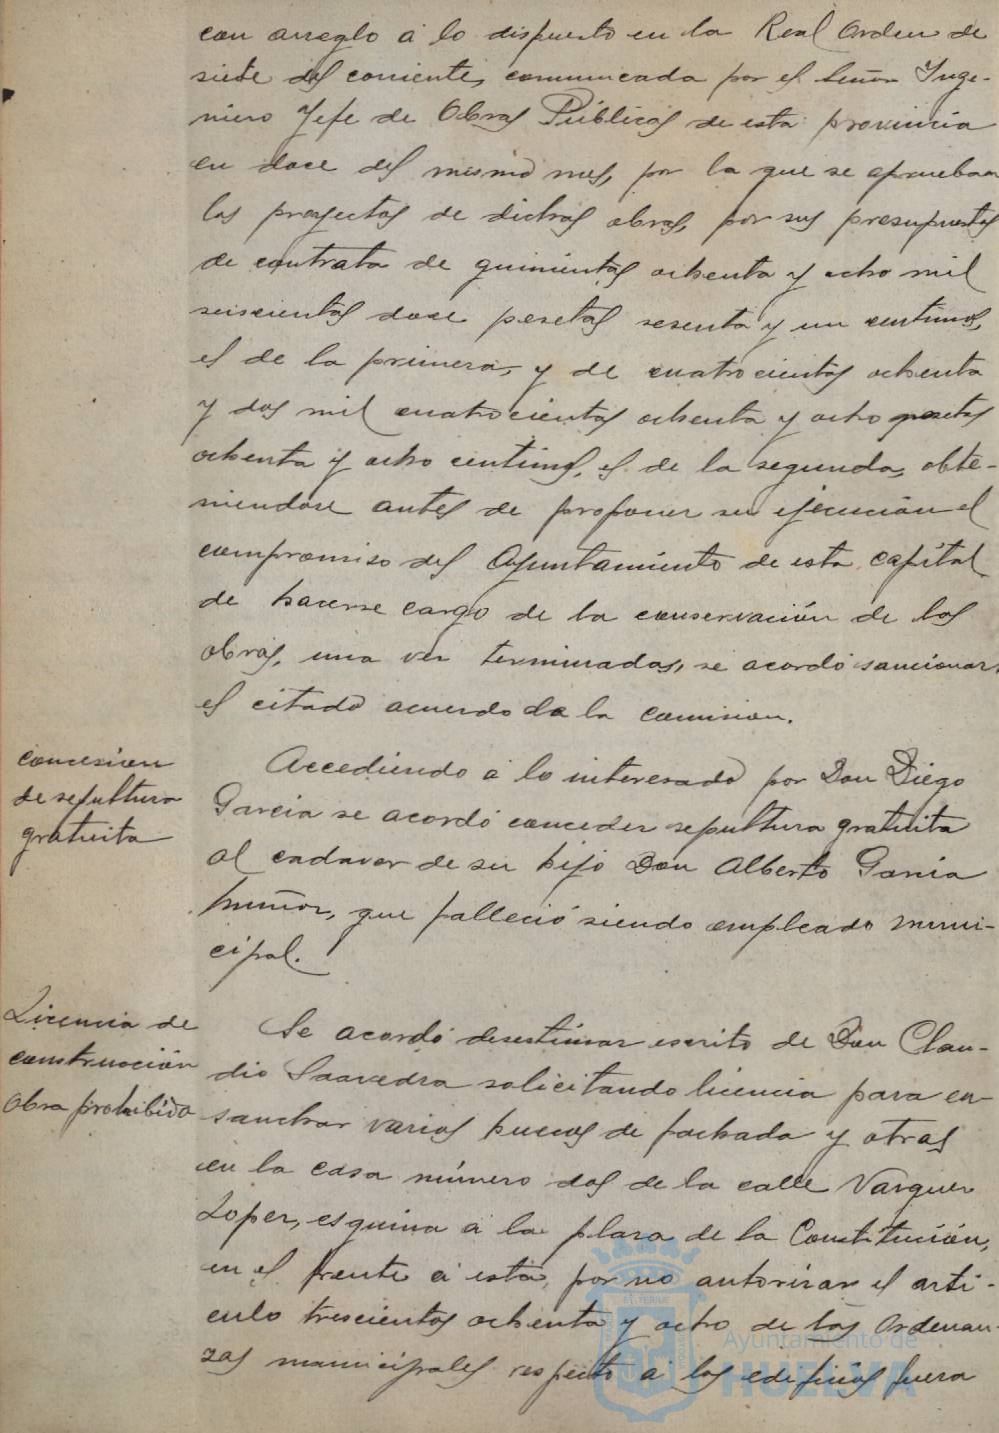 con arreglo á lo dispuesto en la Real Orden de
siete del corriente, comunicada por el Señor Inge-
niero Jefe de Obras Públicas de esta provincia
en doce del mismo mes, por la que se aprueban
los proyectos de dichas obras, por sus presupuestos
de contrata de quinientas ochenta y ocho mil
seiscientas doce pesetas sesenta y un centimos,
el de la primera, y de cuatrocientas ochenta
y dos mil cuatrocientas ochenta y ocho pesetas
ochenta y ocho centimos, el de la segunda, obte-
niendose antes de proponer su ejecución el
compromiso del Ayuntamiento de esta capital
de hacerse cargo de la conservación de las
obras, una vez terminadas, se acordó sancionar
el citado acuerdo de la comision.
concesion
de sepultura
gratuita
Accediendo á lo interesado por Don Diego
Garcia se acordó conceder sepultura gratuita
al cadaver de su hijo Don Alberto Garcia
Muñoz, que falleció siendo empleado muni-
cipal.
Licencia de
construcción
Obra prohibida
Se acordó desestimar escrito de Don Clau-
dio Saavedra solicitando licencia para en-
sanchar varios huecos de fachada y otras
en la casa número dos de la calle Vazquez
Lopez, esquina á la plaza de la Constitución,
en el frente á esta, por no autorizar el arti-
culo trescientos ochenta y ocho de las Ordenan-
zas municipales respecto á los edificios fuera
Ayuntamiento de
HUELVA